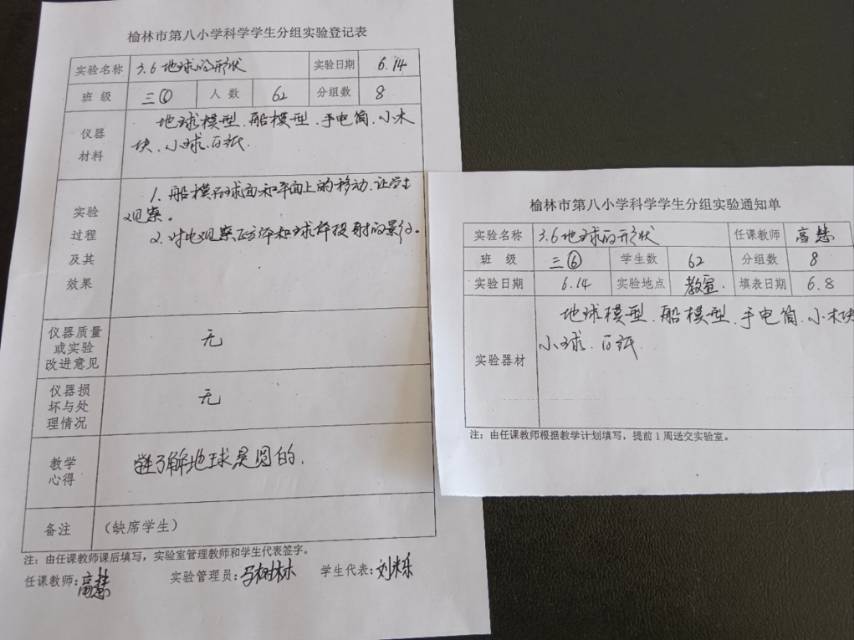 榆林市第八小学科学学生分组实验登记表
实验名称 3.6地球的形状 实验日期 6.14
班 级 三⑥ 人 数 62 分组数 8
仪器
材料
地球模型、船模型、手电筒、小木
块、小球、白纸
实验
过程
及其
效果
1. 船模在球面和平面上的移动,让学生
观察。
2. 对比观察正方体和球体投射的影子。
仪器质量
或实验
改进意见
无
仪器损
坏与处
理情况
无
教学
心得
了解地球是圆的.
备注 (缺席学生)
注:由任课教师课后填写,实验室管理教师和学生代表签字。
任课教师:高慧 实验管理员:马树林 学生代表:刘栎
榆林市第八小学科学学生分组实验通知单
实验名称 3.6地球的形状 任课教师 高慧
班 级 三⑥ 学生数 62 分组数 8
实验日期 6.14 实验地点 教室. 填表日期 6.8
实验器材
地球模型、船模型、手电筒、小木块
小球、白纸
注:由任课教师根据教学计划填写,提前1周送交实验室。